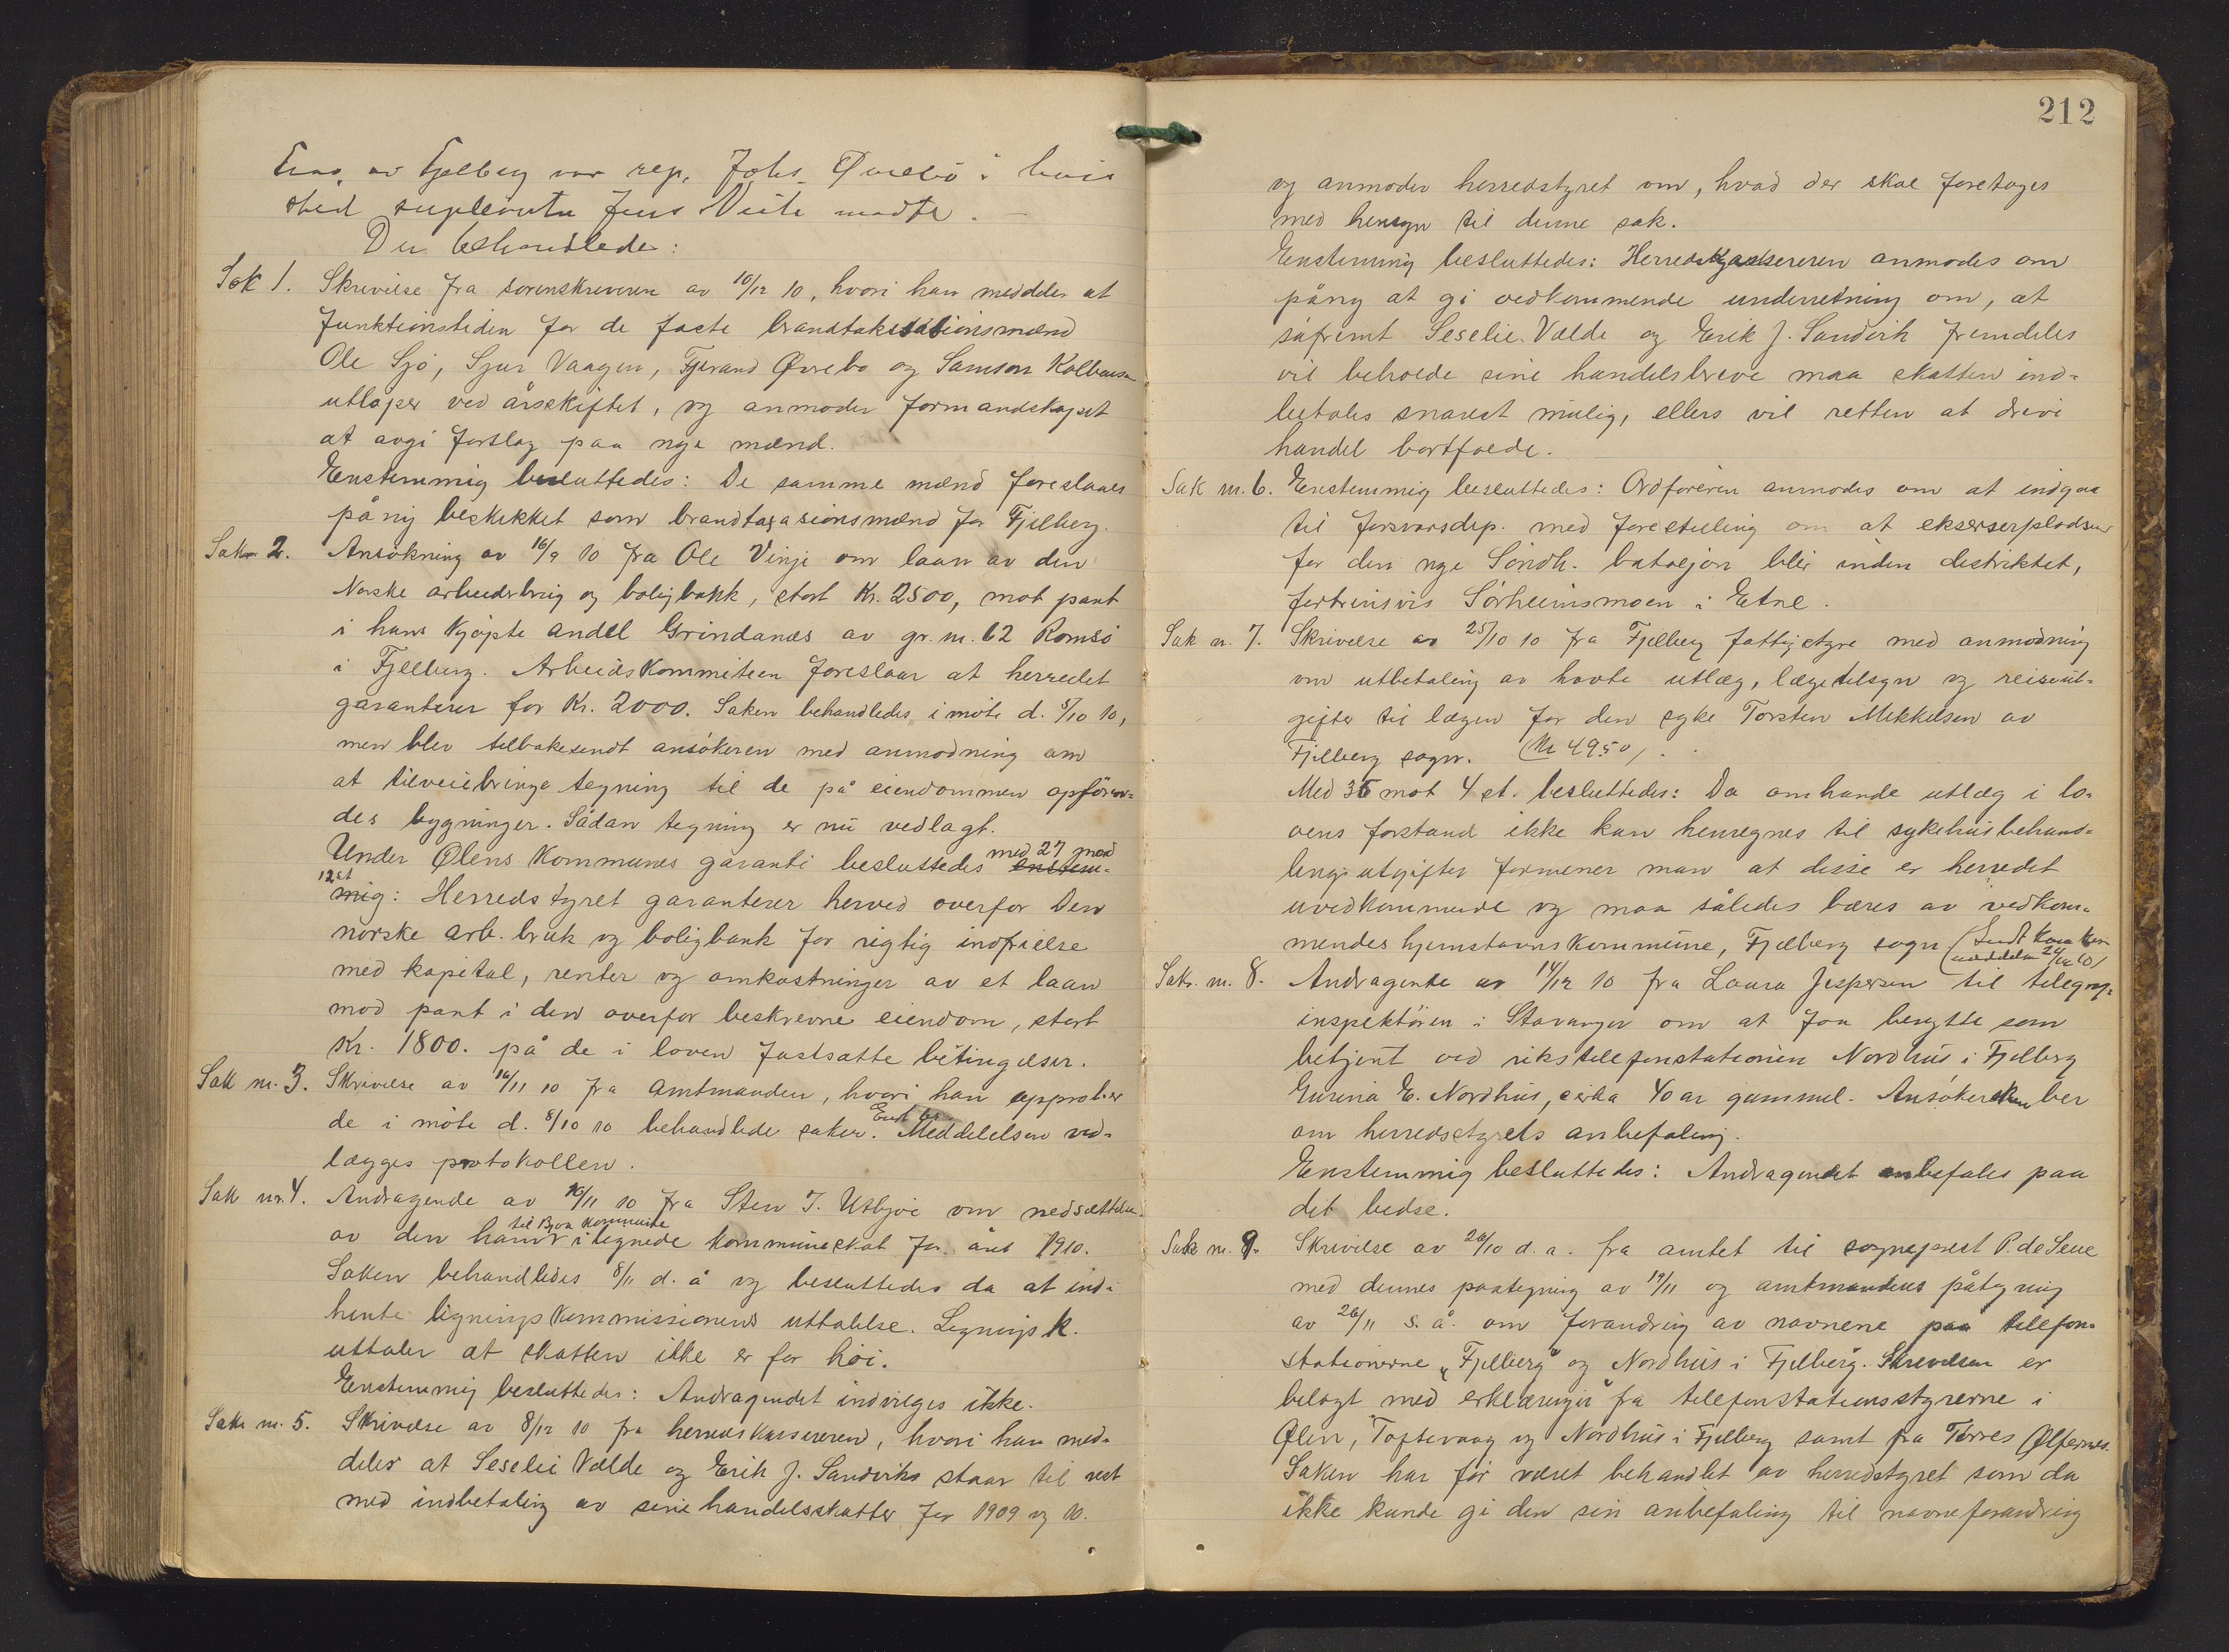 av Fjelberg var rep. Johs. Øvrebö i hvis
sted suplenten Jens Veite mødte. —
Der behandlede:
Sak 1. Skrivelse fra sorenskriveren av 10/12 10, hvori han meddeler at
funktionstiden for de faste brandtakstationsmænd
Ole Sjö, Sjur Vaagen, Tjerand Øvrebo og Samson Kolbeinsen
utløper ved årsskiftet, og anmoder formandskapet
at avgi forslag paa nye mænd.
Enstemmig besluttedes: De samme mænd foreslaaes
pånÿ beskikket som brandtaxasionsmænd for Fjelberg.
Sak 2. Ansökning av 16/9 10 fra Ole Vinje om laan av den
Norske arbeiderbrug og boligbank, stort Kr. 2500, mot pant
i hans kjöpte andel Grindanæs av gr. nr. 62 Romsö
i Fjelberg. Arbeidskommiteen foreslaar at herredet
garanterer for Kr. 2000. Saken behandledes i möte d. 8/10 10,
men blev tilbakesendt ansökeren med anmodning om
at tilveiebringe tegning til de på eiendommen opføren-
des bygninger. Sådan tegning er nu vedlagt.
Under Ølens Kommunes garanti besluttedes med 27 mod enstem-
12 st mig: Herredstyret garanterer herved overfor Den
norske arb. bruk og boligbank for rigtig indfrielse
med kapital, renter og omkostninger av et laan
mod pant i den overfor beskrevne eiendom, stort
Kr. 1800. på de i loven fastsatte betingelser.
Sak nr. 3. Skrivelse av 16/11 10 fra amtmanden, hvori han approberer
de i möte d. 8/10 10 behandlede saker. Enst. bes. Meddelelsen ved-
lægges protokollen.
Sak nr. 4. Andragende av 10/11 10 fra Sten T. Utbjoe om nedsættelse
av den ham til Bjoa Kommune ilegnede kommuneskat for året 1910.
Saken behandledes 8/11 d. å og besluttedes da at ind-
hente ligningskommissionens uttalelse. Legningsk.
uttaler at skatten ikke er for höi.
Enstemmig besluttedes: Andragendet indvilges ikke.
Sak nr. 5. Skrivelse av 8/12 10 fra herredskassereren, hvori han med-
deler at Seselie Vælde og Erik J. Sandviks staar til rest
med indbetaling av sine handelsskatter for 1909 og 10.
212
og anmoder herredstyret om, hvad der skal foretages
med hensyn til denne sak.
Enstemmig besluttedes: Herredskassereren anmodes om
påny at gi vedkommende underretning om, at
såfremt Seselie Vælde og Erik J. Sandvik fremdeles
vil beholde sine handelsbreve maa skatten ind-
betales snarest mulig, ellers vil retten at drive
handel bortfalde.
Sak nr. 6. Enstemmig besluttedes: Ordføreren anmodes om at indgaa
til forsvarsdep. med forestilling om at ekserserpladsen
for den nye Söndh. bataljon blir inden distriktet,
fortrinsvis Sörheimsmoen i Etne.
Sak n. 7. Skrivelse av 25/10 10 fra Fjelberg fattigstyre med anmodning
om utbetaling av havte utlæg, lægetilsyn og reiseut-
gifter til lægen for den syke Torsten Mikkelsen av
Fjelberg sogn. (Kr 49.50).
Med 35 mot 4 st. besluttedes: Da omhande utlæg i lo-
vens forstand ikke kan henregnes til sykehusbehand-
lingsutgifter formener man at disse er herredet
uvedkommende og maa således bæres av vedkom-
mendes hjemstavnskommune, Fjelberg sogn. (Sendt
meddelelse 24/12 10)
Sak. nr. 8. Andragende av 14/12 10 fra Laura Jespersen til telegraf-
inspektören i Stavanger om at faa benytte som
betjent ved rikstelefonstationen Nordhus i Fjelberg
Gurina E. Nordhus, cirka 40 ar gammel. Ansökersken ber
om herredsstyrets anbefaling.
Enstemmig besluttedes: Andragendet anbefales paa
det bedse.
Sak n. 9. Skrivelse av 20/10 d. a. fra amtet til sogneprest P. de Seue
med dennes paategning av 19/11 og amtmandens påtegning
av 26/11 s. å. om forandring av navnene paa telefon-
stationerne „Fjelberg" og Nordhus i Fjelberg. Skrivelsen er
belagt med erklæringer fra telefonstationsstyrerne i
Ølen, Toftevaag og Nordhus i Fjelberg samt fra Torres Ølfernes.
Saken har før været behandlet av herredstyret som da
ikke kunde gi den sin anbefaling til navneforandring